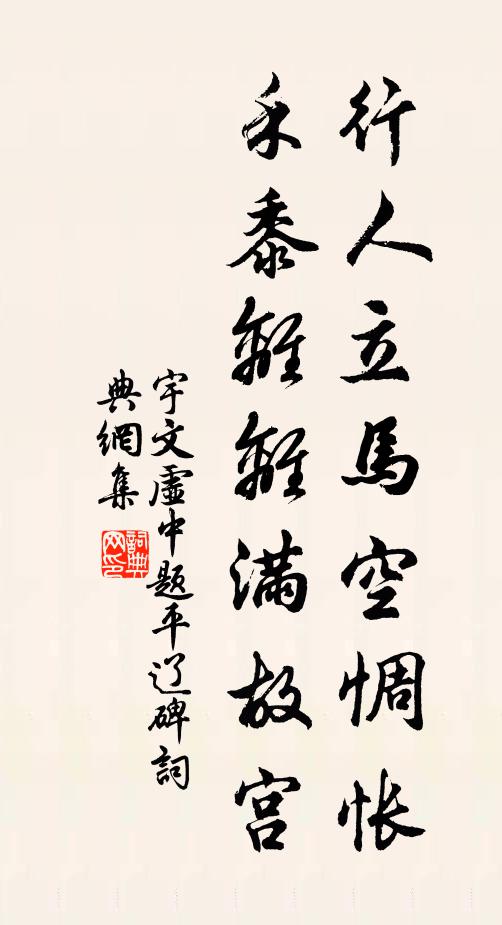 行人立馬空惆怅
禾黍離離滿故宫
宇文虛中題平辽碑詞
典網集
詞典网印